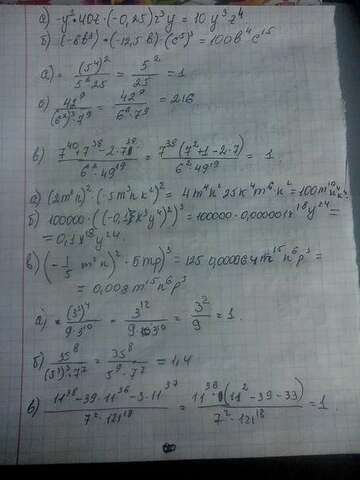 а) -y²·40z·(-0,25)z³y = 10y³z⁴
б) (-8b³)·(-12,5b)·(c⁵)³ = 100b⁴c¹⁵
а) = (5⁴)²/5⁶·25 = 5²/25 = 1
б) 42⁹/(6²)³·7⁹ = 42⁹/6⁶·7⁹ = 216
в) 7⁴⁰+7³⁸-2·7³⁹/6²·49¹⁹ = 7³⁸(7²+1-2·7)/6²·49¹⁹ = 1.
а) (2m²n)²·(5m³nk²)² = 4m⁴n²25k⁴m⁶n² = 100m¹⁰n⁴k⁴
б) 100000·((-0,1x³y⁴)²)³ = 100000·0,000001x¹⁸y²⁴ =
= 0,1x¹⁸y²⁴.
в) (-1/5 m²n)²·5mp)³ = 125·0,000064m¹⁵n⁶p³ =
= 0,008m¹⁵n⁶p³
а) (3³)⁴/9·3¹⁰ = 3¹²/9·3¹⁰ = 3²/9 = 1.
б) 35⁸/(5³)³·7⁷ = 35⁸/5⁹·7⁷ = 1,4
в) 11³⁸-39·11³⁶-3·11³⁷/7²·121¹⁸ = 11³⁶(11²-39-33)/7²·121¹⁸ = 1.